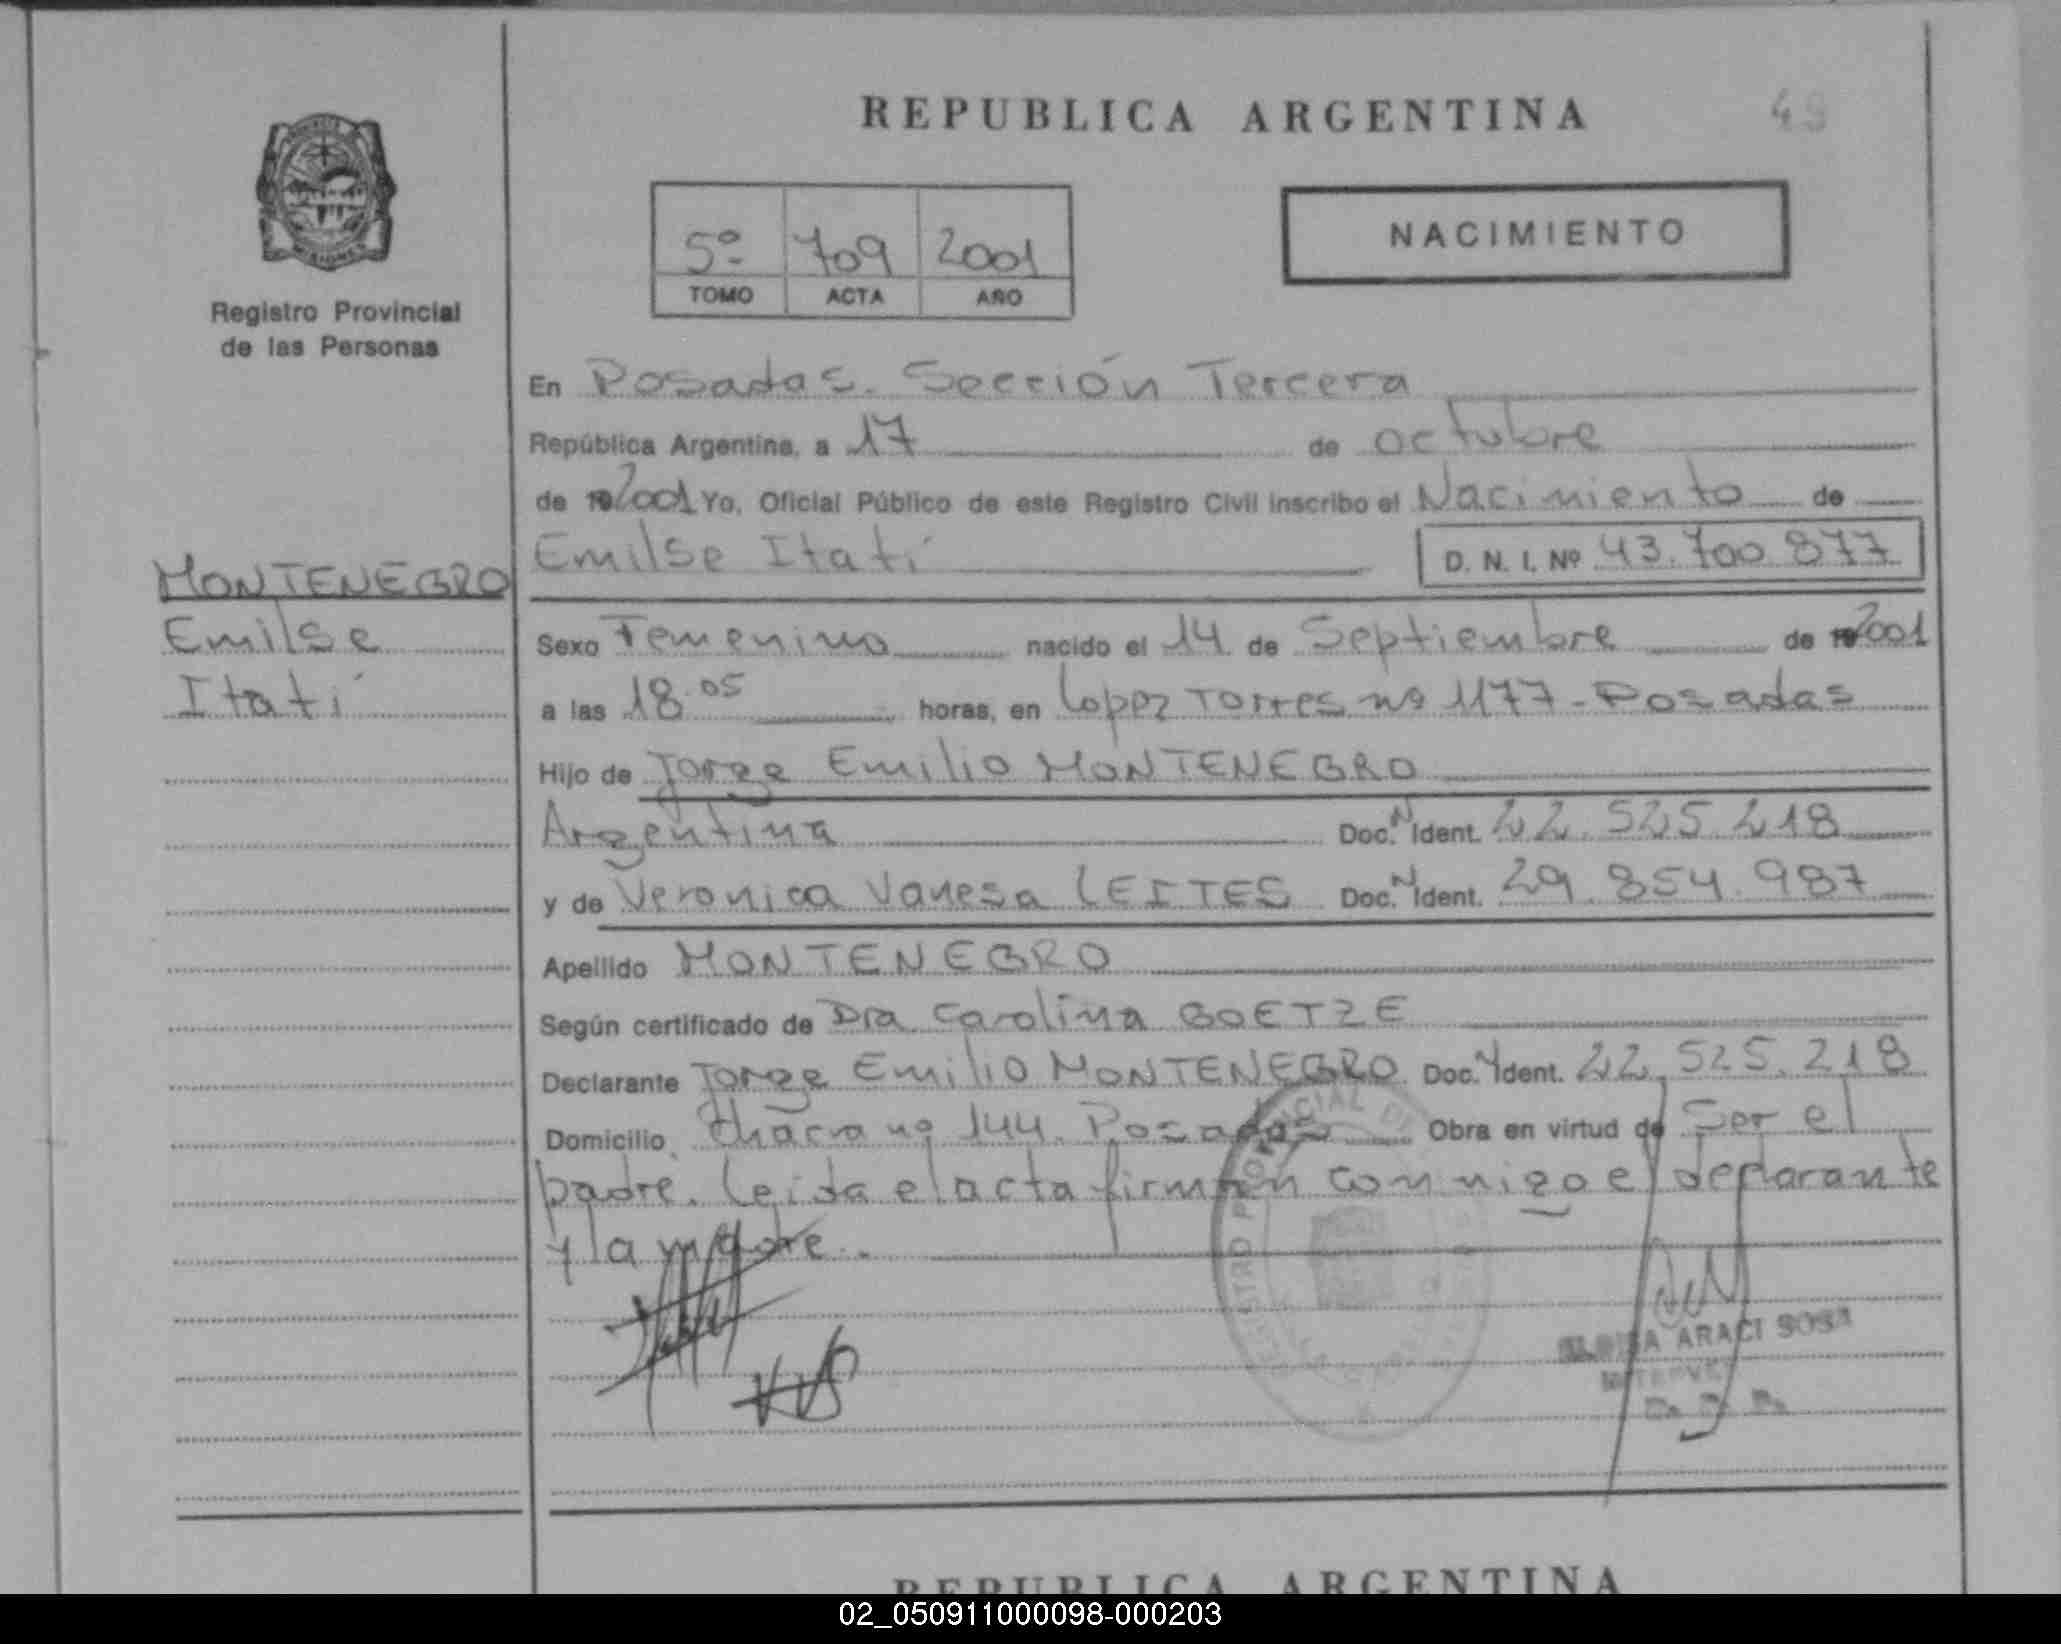 REPUBLICA ARGENTINA
49
5º 709 2001
TOMO ACTA AÑO
NACIMIENTO
Registro Provincial
de las Personas
MONTENEGRO
Emilse
Itatí
En Posadas. Sección Tercera
República Argentina, a 17 de octubre
de 2001 Yo, Oficial Público de este Registro Civil inscribo el Nacimiento de
Emilse Itatí D. N. I. Nº 43.700.877
Sexo Femenino nacido el 14 de Septiembre de 2001
a las 18.05 horas, en Lopez Torres nº 1177 - Posadas
Hijo de Jorge Emilio MONTENEGRO
Argentina Doc. N Ident. 22.525.218
y de Veronica Vanesa LEITES Doc. N Ident. 29.854.987
Apellido MONTENEGRO
Según certificado de Dra Carolina GOETZE
Declarante Jorge Emilio MONTENEGRO Doc. N Ident. 22.525.218
Domicilio Chacra nº 144. Posadas Obra en virtud de Ser el
padre. Leida el acta firman conmigo el declarante
y la madre.
ARACI SOSA
REPUBLICA ARGENTINA
02_050911000098-000203